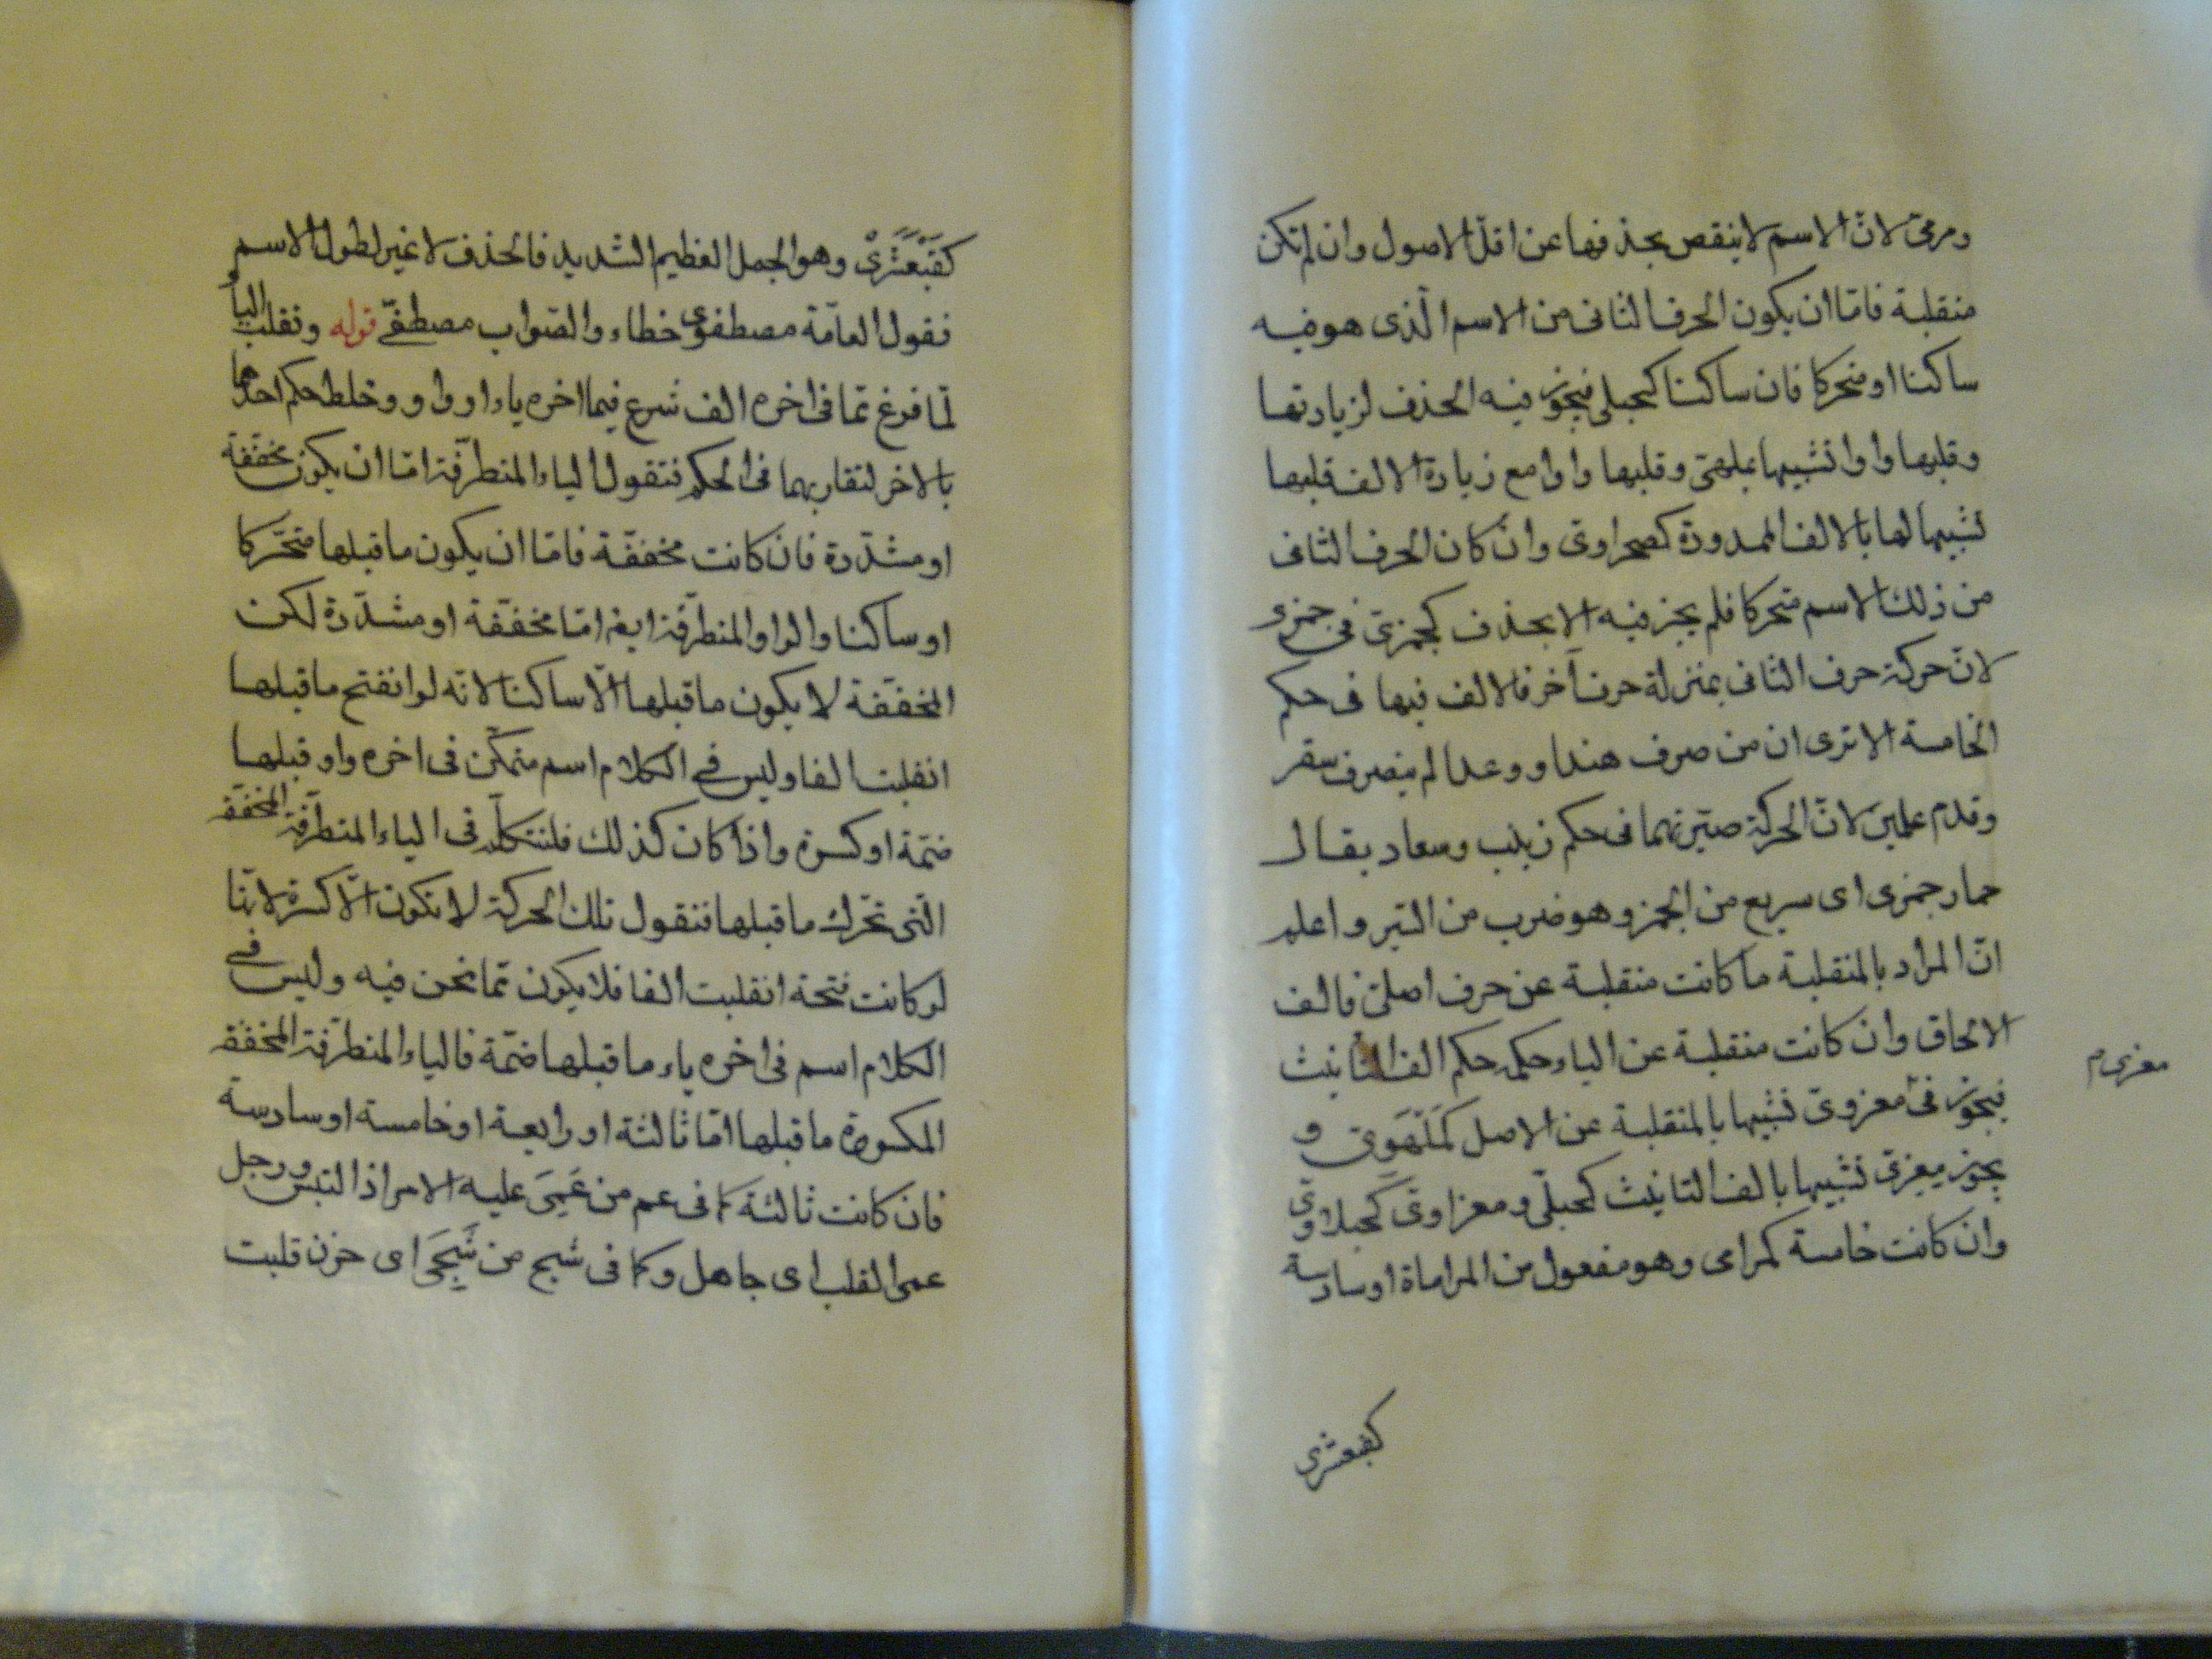 ومرمىّ لانّ الاسم لا ينقص بحذفها عن اقلّ الاصول وان لم تكن
منقلبة فامّا ان يكون الحرف الثانى من الاسم الّذى هو فيه
ساكنا او متحركا فان ساكنا كحبلى فيجوز فيه الحذف لزيادتها
وقلبها واوا تشبيها بملهىّ وقلبها واوا مع زيادة الالف قلبها
تشبيها لها بالالف الممدودة كصحراوىّ وان كان الحرف الثانى
من ذلك الاسم متحركا فلم يجز فيه الا بحذف كجمزىّ فى جمزى
لانّ حركة حرف الثانى بمنزلة حرف آخر فالالف فيها فى حكم
الخامسة الا ترى ان من صرف هندا ووعدا لم يصرف سقر
وقدم علمين لانّ الحركة صيّرتهما فى حكم زينب وسعاد يقال
حمار جمزى اى سريع من الجمز وهو ضرب من السّير واعلم
انّ المراد بالمنقلبة ما كانت منقلبة عن حرف اصلىّ فالف
الالحاق وان كانت منقلبة عن الياء حكمه حكم الف التانيث
فيجوز فى معزوىّ تشبيها بالمنقلبة عن الاصل كمَلْهَوِىّ و
معزى م
يجوز معزىّ تشبيها بالف التانيث كحبلىّ ومعزاوىّ كحبلاوىّ
وان كانت خامسة كمرامى وهو مفعول من المراماة او سادسة
كقبعثرى
كقَبَعْثَرَىْ وهو الجمل العظيم الشديد فالحذف لا غير لطول الاسم
فقول العامّة مصطفوى خطاء والصّواب مصطفىّ قوله وتقلب الياء
لمّا فرغ ممّا فى اخره الف شرع فيما اخره ياء او واو وخلط حكم احدهما
بالاخر لتقاربهما فى الحكم فتقول الياء المتطرّفة امّا ان يكون مخفّفة
او مشدّدة فان كانت مخففّة فامّا ان يكون ما قبلها متحرّكا
او ساكنا والواو المتطرّفة ايضا امّا مخفّفة او مشدّدة لكن
المخفّفة لا يكون ما قبلها الّا ساكنا لانّه لو انفتح ما قبلها
انقلبت الفا وليس فى الكلام اسم متمكّن فى اخره واو قبلها
ضمّة او كسرة واذا كان كذلك فلنتكلّم فى الياء المتطرّفة المخفّفة
الّتى تحّرك ما قبلها فنقول تلك الحركة لا تكون الّا كسرة لانّها
لو كانت فتحة انقلبت الفا فلا يكون ممّا نحن فيه وليس فى
الكلام اسم فى اخره ياء ما قبلها ضمّة فالياء المتطرّفة المخفّفة
المكسورة ما قبلها امّا ثالثة او رابعة او خامسة او سادسة
فان كانت ثالثة كما فى عم من عَمِىَ عليه الامر اذا التبس ورجل
عمى القلب اى جاهل وكما فى شبح من شَجِىَ اى حزن قلبت